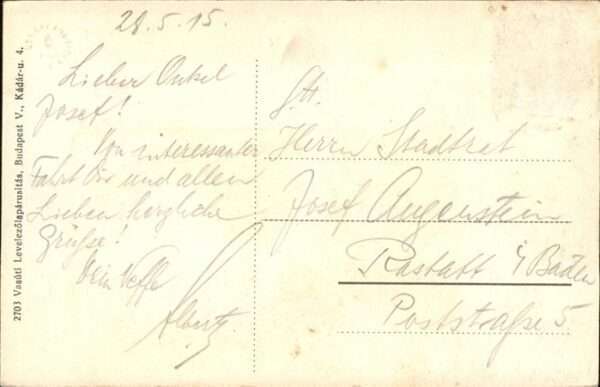 2703 Vasúti Levelezőlapárusítás, Budapest V., Kádár-u. 4.
28.5.15
Lieber Onkel
Josef!
Von interessanter
Fahrt Dir und allen
Lieben herzliche
Grüße!
Dein Neffe
Albert
Herrn Stadtrat
Josef Augenstein
Rastatt i/Baden
Poststraße 5.